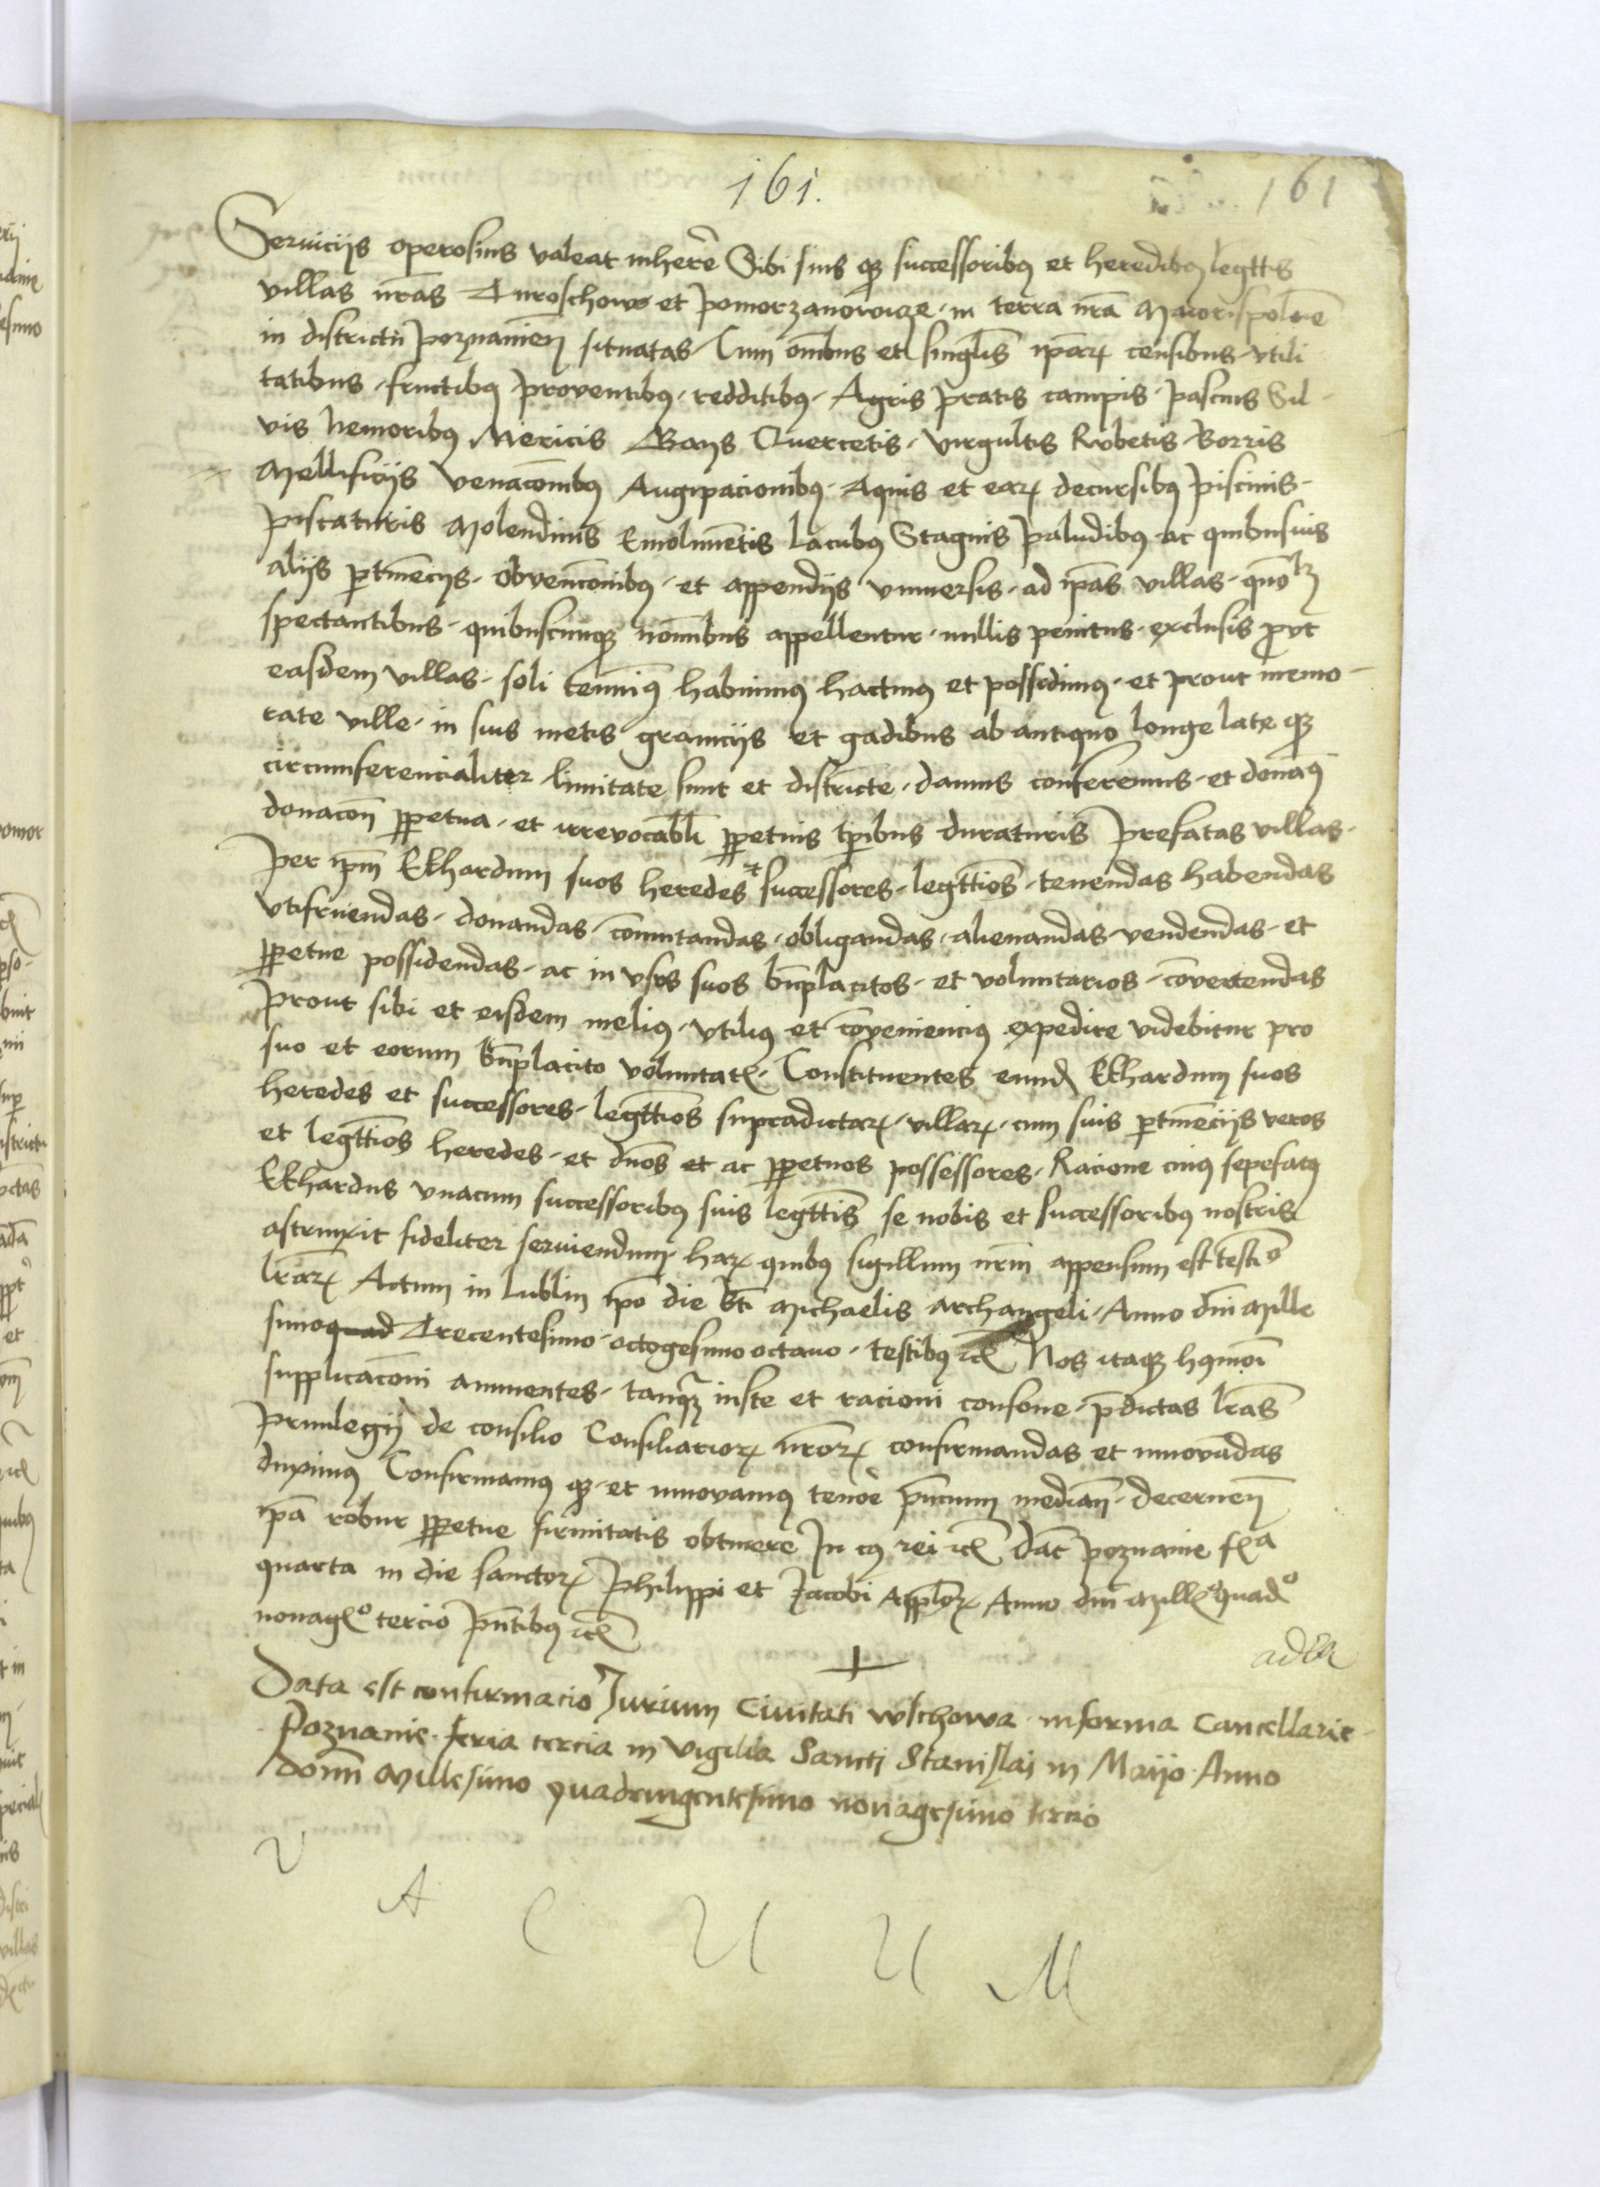 161.
161
Seruicijs operosius valeat inhere͂ Sibi suis qꝫ successoribꝰ et heredibꝰ legtt͂is
villas nr͂as Turoschow et pomorzanowicze in terra nr͂a Maiorispolo͂ie
in districtu poznanien͂ situatas Cum om͂ibus et singul͂is ip͂aꝝ censibus vtili
tatibus fructibꝰ prouentibꝰ redditibꝰ Agris pratis campis pascuis Sil
vis Nemoribꝰ Mericis Gays Quercetis virgultis Rubetis Borris
Mellificijs venaco͂mbꝰ Aucupacionibꝰ Aquis et eaꝝ decursibꝰ piscinis
piscaturis Molendinis Emolime͂tis Lacubꝰ Stagnis paludibꝰ ac quibusuis
alijs ꝑtine͂cijs obuenco͂nibꝰ et appendijs vniuersis ad ip͂as villas quo͂lꝫ
spectantibus quibuscunqꝫ nom͂ibus appellentur nullis penitus exclusis ꝓut
easdem villas soli tenuimꝰ habuimꝰ hactenꝰ et possedimꝰ et prout memo
rate ville in suis metis granicijs et gadibus ab antiquo longe late qꝫ
circumferencialiter limitate sunt et districte damus conferimus et dona͂ꝰ
donaco͂e ꝑpetua et irreuocabl͂i ꝑpetuis tp͂ibus duraturis prefatas villas
per ip͂m Ekhardum suos heredes et successores legttio͂s tenendas habendas
vtifruendas donandas co͂mutandas obligandas alienandas vendendas et
ꝑpetue possidendas ac in vsus suos bn͂placitos et voluntarios co͂uertendas
prout sibi et eisdem meliꝰ vtiliꝰ et co͂uenienciꝰ expedire videbitur pro
suo et eorum bn͂placito voluntatꝭ Constituentes eund͂ Ekhardum suos
heredes et successores legttio͂s supradictaꝝ villaꝝ cum suis ꝑtine͂cijs veros
et legttio͂s heredes et dn͂os et ac ꝑpetuos possessores Racione cuiꝰ sepefatꝰ
Ekhardus vnacum successoribꝰ suis legtt͂is se nobis et successoribꝰ nostris
astrinxit fideliter seruiendum haꝝ quibꝰ sigillum nr͂m appensum est testi͂o
lr͂aꝝ Actum in Lublin ip͂o die bt͂i Michaelis archangeli Anno dn͂i Mille
simo quad Trecentesimo octogesimo octauo testibꝰ etc͂ Nos itaqꝫ hꝰmo͂i
supplicaco͂ni annuentes tanqꝫ iuste et racioni consone p͂dictas lr͂as
priuilegij de consilio Consiliarioꝝ nr͂oꝝ confirmandas et innoua͂das
duximꝰ Confirmamꝰ qꝫ et innouamꝰ teno͂e pn͂cium median͂ decernen͂
ip͂a robur ꝑpetue firmitatis obtinere In cꝰ rei etc͂ Dat͂ poznanie fꝭa
quarta in die sanctoꝝ Philippi et Jacobi Apploꝝ Anno dn͂i Millꝭo quadꝭo
nonagꝭo tercio pn͂tibꝰ etc͂
Data est confirmacio Jurium Ciuitati wschowa informa Cancellarie
Poznanie feria tercia in vigilia Sancti Stanislai in Maijo Anno
Domi͂ Millesimo quadringentesimo nonagesimo tercio
V A C U U M